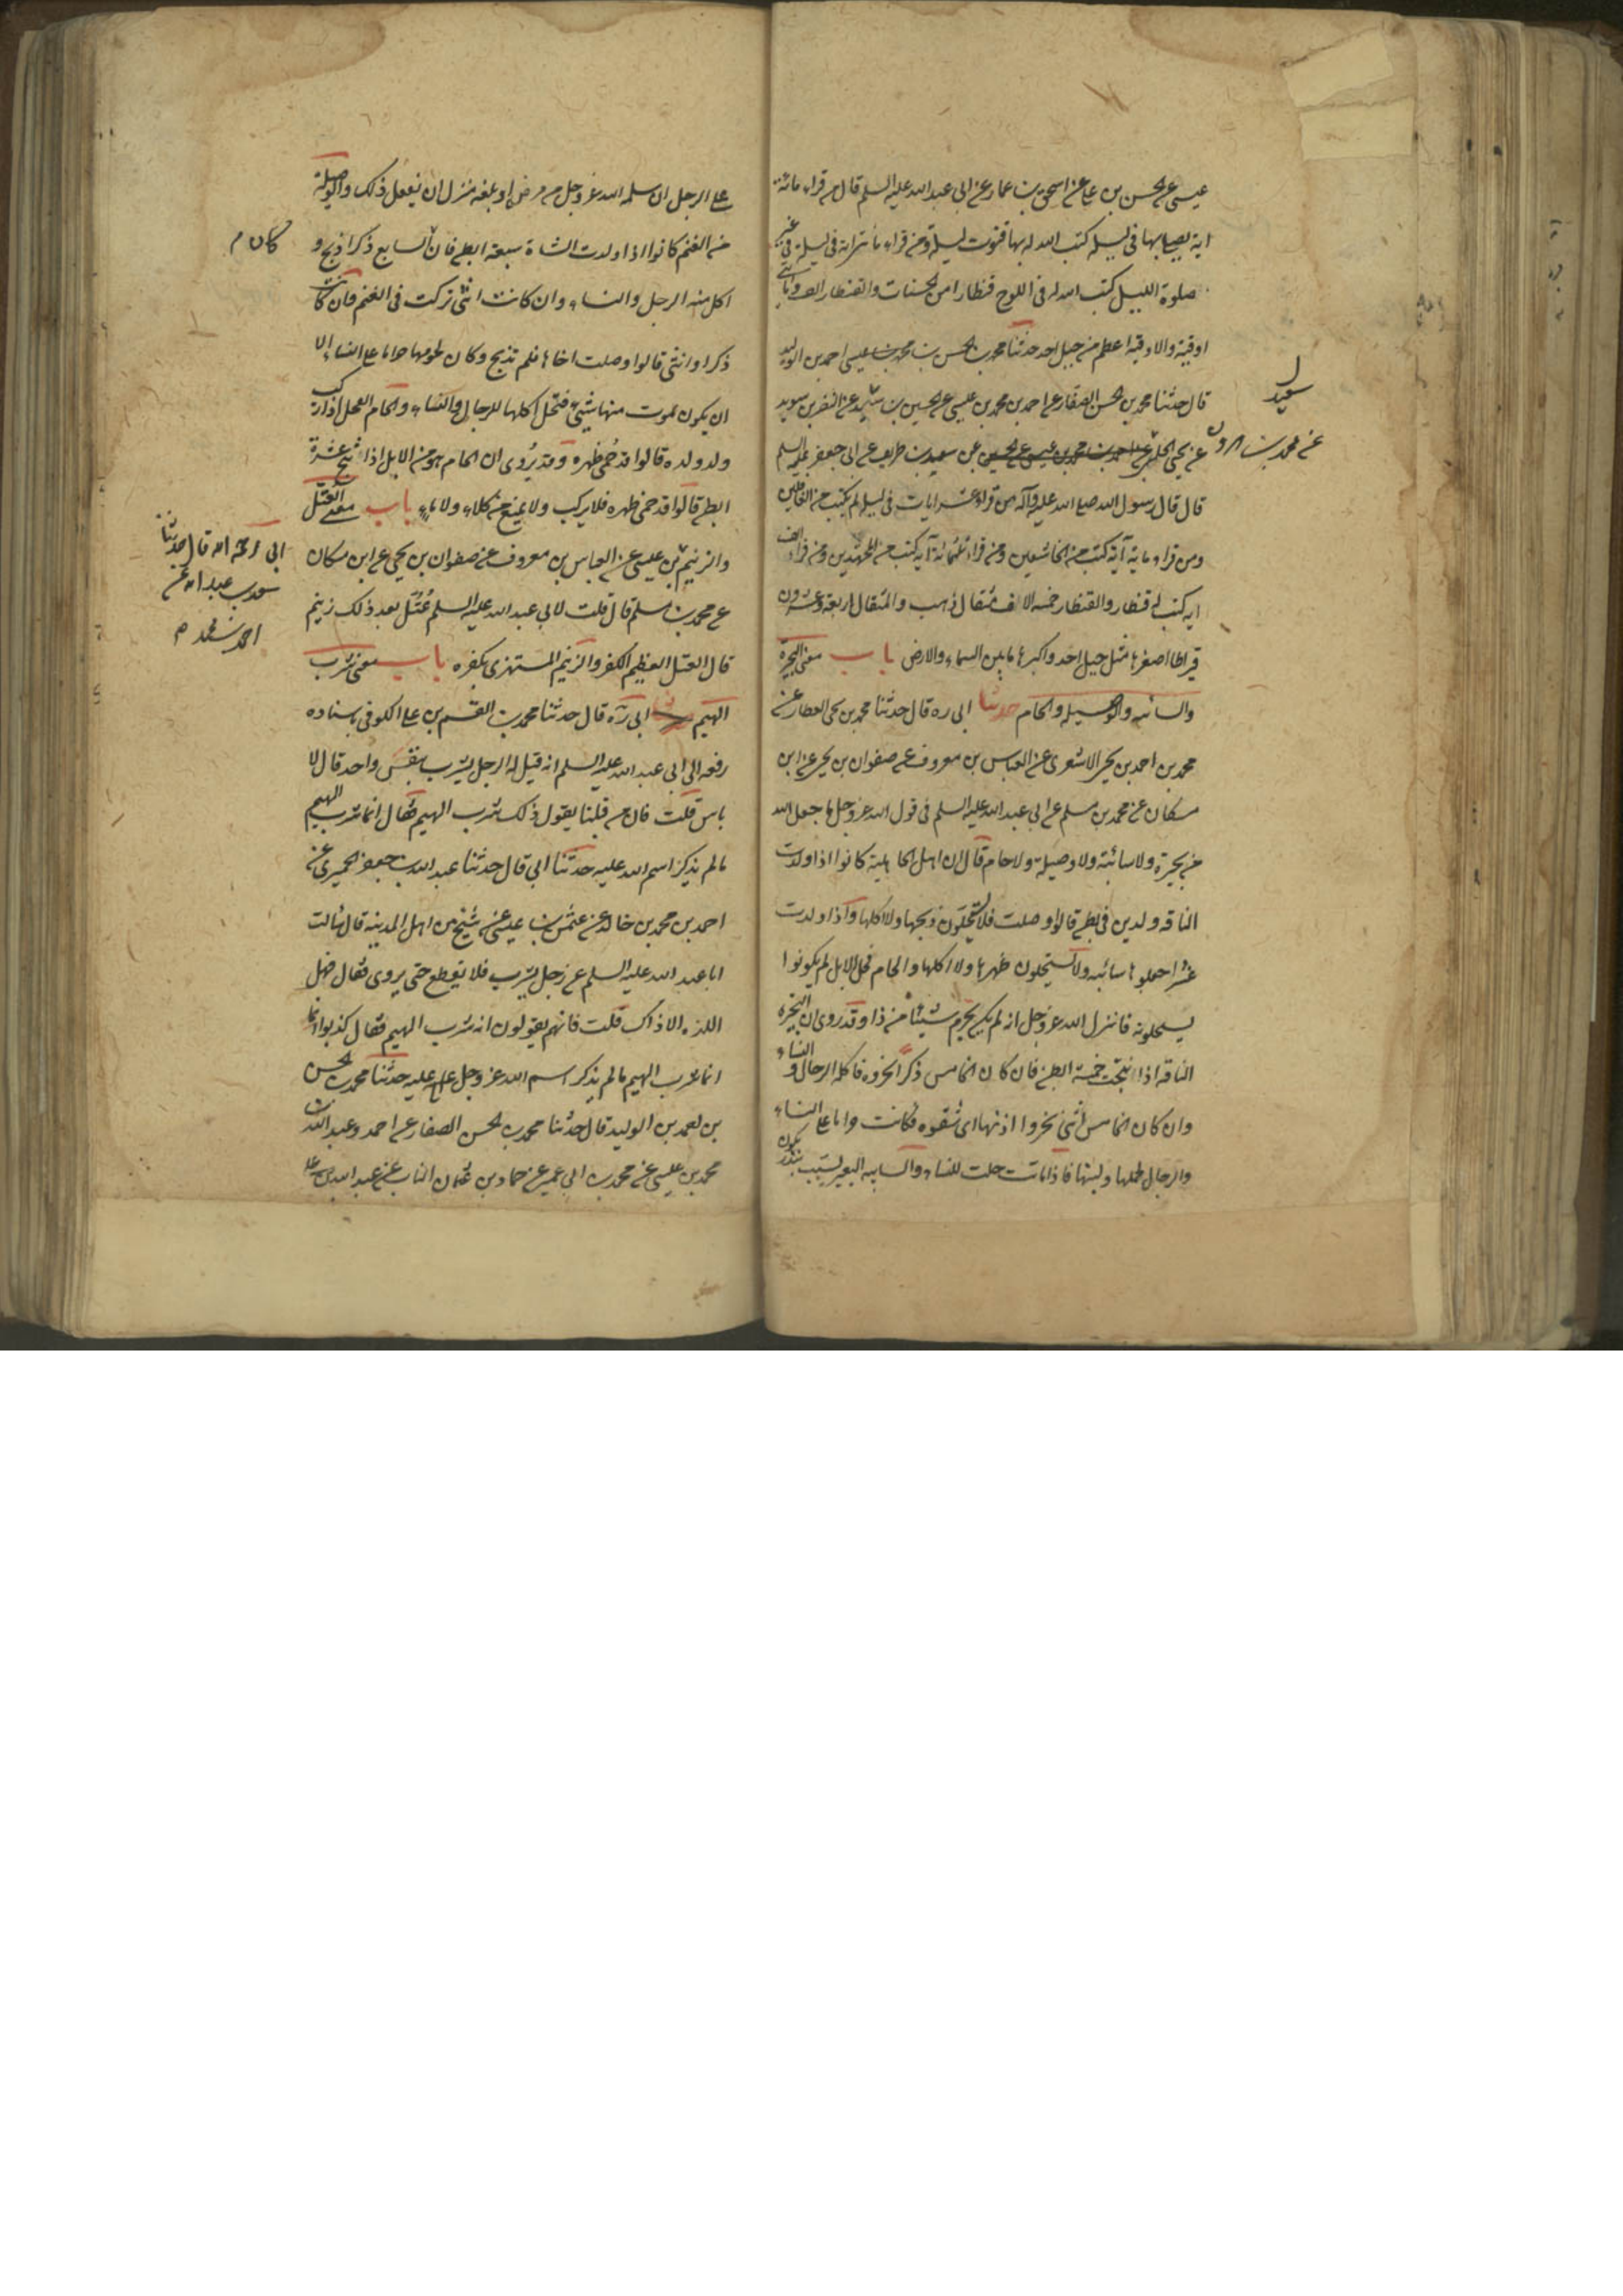 عيسى عن الحسن بن على عن اسحق بن عمار عن ابى عبد الله عليه السلم قال من قراء مائة
اية يصلى بها فى ليله كتب الله له بها قنوت ليلة ومن قراء مأتى اية فى ليلة فى غير
صلوة الليل كتب الله له فى اللوح قنطارا من الحسنات والقنطار الف ومأتى
اوقية والاوقية اعظم من جبل احد حدثنا محمد بن الحسن بن احمد بن الوليد
قال حدثنا محمد بن الحسن الصفار عن احمد بن محمد بن عيسى عن الحسين بن سعيد عن النضر بن سويد
سعيد
عن يحيى الحلبى عن محمد بن مروان عن سعد بن طريف عن ابى جعفر عليه السلم
قال قال رسول الله صلى الله عليه وآله من قراء عشر ايات فى ليلة لم يكتب من الغافلين
ومن قراء ماية آية كتب من الخاشعين ومن قراء ثلثمائة آية كتب من المجتهدين ومن قراء الف
اية كتب له قنطار والقنطار خمسة الاف مثقال ذهب والمثقال اربعة وعشرون
قيراطا اصغرها مثل جبل احد واكبرها ما بين السماء والارض باب معنى البحيرة
والسائبه والوصيله والحام حدثنا ابى ره قال حدثنا محمد بن يحيى العطار عن
محمد بن احمد بن يحيى الاشعرى عن العباس بن معروف عن صفوان بن يحيى عن ابن
مسكان عن محمد بن مسلم عن ابى عبد الله عليه السلم فى قول الله عز وجل ما جعل الله
من بحيرة ولا سائبة ولا وصيلة ولا حام قال ان اهل الجاهلية كانوا اذا ولدت
الناقه ولدين فى بطن قالوا وصلت فلا يستحلون ذبحها ولا اكلها واذا ولدت
عشرا جعلوها سائبه ولا يستحلون ظهرها ولا اكلها والحام فحل الابل لم يكونوا
يستحلونه فانزل الله عز وجل انه لم يكن يحرم شيئا من ذا وقد روى ان البحيرة
الناقه اذا انتجت خمسة ابطن فان كان الخامس ذكرا نحروه فاكله الرجال والنساء
وان كان الخامس انثى بحروا اذنها اى شقوه وكانت حراما على النساء
والرجال لحمها ولبنها فاذا ماتت حلت للنساء والسايبه البعير يسيب بنذر يكون
على الرجل ان سلمه الله عز وجل من مرض او بلغه منزله ان يفعل ذلك والوصيلة
من الغنم كانوا اذا ولدت الشاة سبعة ابطن فان كان السابع ذكرا ذبح و
اكل منه الرجل والنساء وان كانت انثى تركت فى الغنم فان كانت
ذكرا وانثى قالوا وصلت اخاها فلم تذبح وكان لحومها حراما على النساء الا
ان يكون يموت منها شئ فتحل اكلها للرجال والنساء والحام الفحل اذا ركب
ولد ولده قالوا قد حمى ظهره وقد يروى ان الحام هو من الابل اذا نتج عشرة
ابطن قالوا قد حمى ظهره فلا يركب ولا يمنع من كلاء ولا ماء باب معنى العتل
والزنيم ابى رحمه الله قال حدثنا
سعد بن عبد الله عن
احمد بن محمد
بن عيسى عن العباس بن معروف عن صفوان بن يحيى عن ابن مسكان
عن محمد بن مسلم قال قلت لابى عبد الله عليه السلم عتل بعد ذلك زنيم
قال العتل العظيم الكفر والزنيم المستهزى بكفره باب معنى شرب
الهيم ابى ره قال حدثنا محمد بن القسم بن على الكوفى باسناده
رفعه الى ابى عبد الله عليه السلم انه قيل له الرجل يشرب بنفس واحد قال لا
باس قلت فان من قبلنا يقول ذلك شرب الهيم فقال انما شرب الهيم
ما لم يذكر اسم الله عليه حدثنا ابى قال حدثنا عبد الله بن جعفر الحميرى عن
احمد بن محمد بن خالد عن عثمن بن عيسى عن شيخ من اهل المدينة قال سالت
ابا عبد الله عليه السلم عن رجل يشرب فلا يقطع حتى يروى فقال فهل
اللذه الا ذاك قلت فانهم يقولون انه شرب الهيم فقال كذبوا انما
انما شرب الهيم ما لم يذكر اسم الله عز وجل عليه حدثنا محمد بن الحسن
بن احمد بن الوليد قال حدثنا محمد بن الحسن الصفار عن احمد وعبد الله ابنى
محمد بن عيسى عن محمد بن ابى عمير عن حماد بن عثمان الناب عن عبيد الله بن على